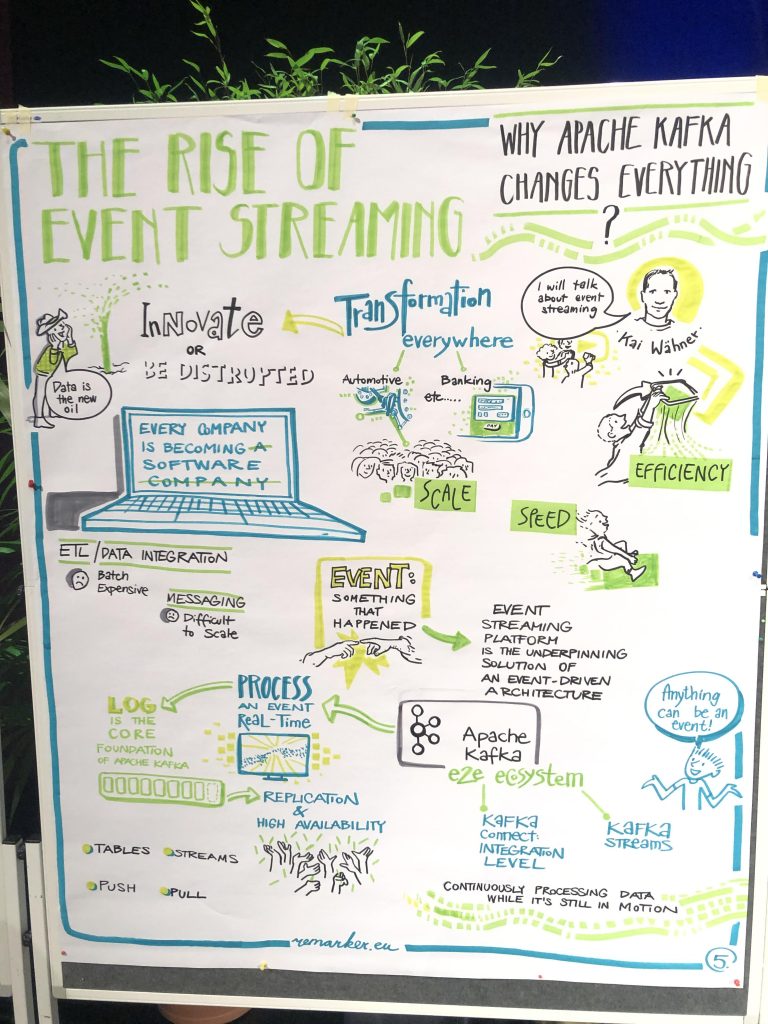 THE RISE OF
EVENT STREAMING
WHY APACHE KAFKA
CHANGES EVERYTHING
?
I will talk
about event
streaming
Kai Wähner
Transformation
everywhere
Automotive
Banking
etc.....
InNovate
OR
BE DISTRUPTED
Data is
the new
oil
EVERY COMPANY
IS BECOMING A
SOFTWARE
COMPANY
SCALE
EFFICIENCY
SPEED
ETL/DATA INTEGRATION
Batch
Expensive
MESSAGING
Difficult
to Scale
EVENT:
SOMETHING
THAT
HAPPENED
EVENT
STREAMING
PLATFORM
IS THE UNDERPINNING
SOLUTION OF
AN EVENT-DRIVEN
ARCHITECTURE
Anything
can be an
event!
Apache
Kafka
e2e ecosystem
KAFKA
Connect:
INTEGRATION
LEVEL
KAFKA
STREAMS
PROCESS
AN EVENT
ReaL-Time
LOG
IS THE
CORE
FOUNDATION
OF APACHE KAFKA
REPLICATION
&
HIGH AVAILABILITY
TABLES
STREAMS
PUSH
PULL
CONTINUOUSLY PROCESSING DATA
WHILE IT'S STILL IN MOTION
remarker.eu
5.